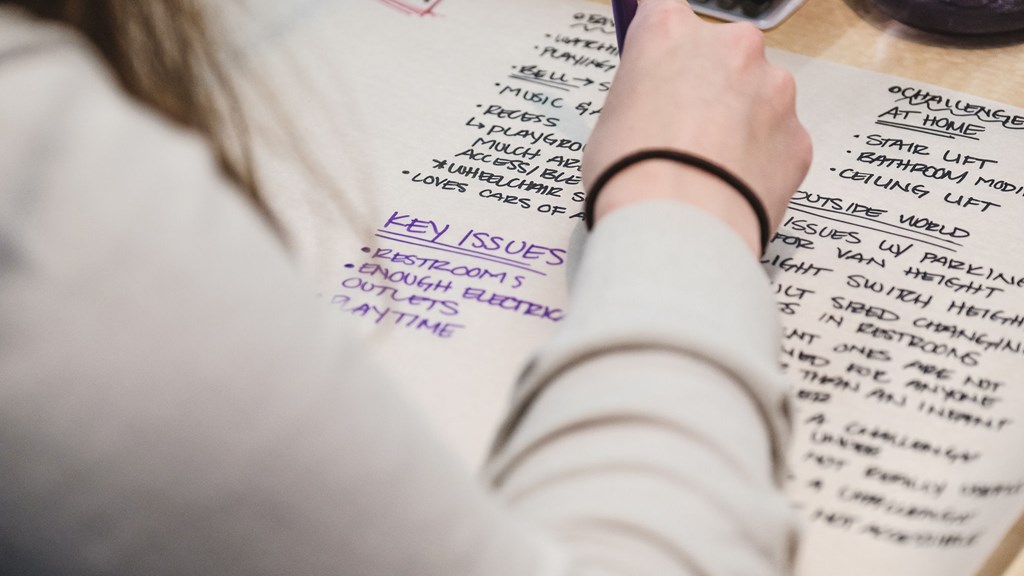 • WATCHIN
• PLAYING
• BELL → S
• MUSIC &
• RECESS
↳ PLAYGRO
MULCH AR
ACCESS/BLE
*WHEELCHAIR S
• LOVES CARS OF A
KEY ISSUES
• RESTROOMS
• ENOUGH ELECTRIC
OUTLETS
PLAYTIME
CHALLENGE
AT HOME
• STAIR LIFT
• BATHROOM MODI
• CEILING LIFT
OUTSIDE WORLD
ISSUES W/ PARKING
FOR VAN HEIGHT
LIGHT SWITCH HEIGH
ULT SIZED CHANGIN
S IN RESTROOMS
NT ONES ARE NOT
NED FOR ANYONE
THAN AN INFANT
ER
A CHALLENGE
UNDER
NOT EQUALLY
A CHALLENGE
NOT ACCESSIBLE